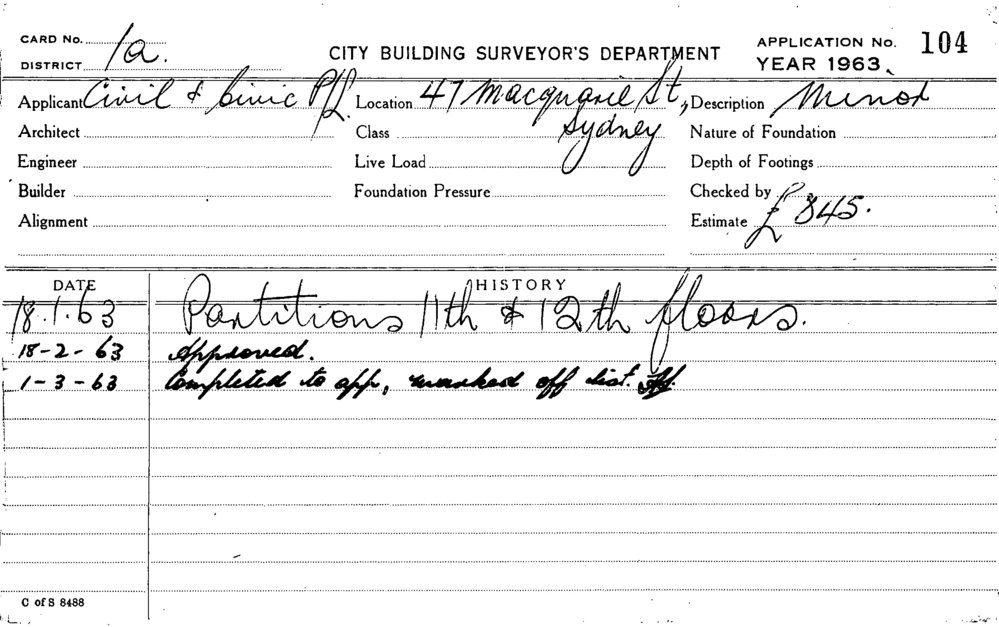 CARD No.
DISTRICT 1a.
CITY BUILDING SURVEYOR'S DEPARTMENT
APPLICATION No. 104
YEAR 1963
Applicant Civil & Civic P/L. Location 47 Macquarie St., Description Minor
Architect Class Sydney Nature of Foundation
Engineer Live Load Depth of Footings
Builder Foundation Pressure Checked by
Alignment Estimate £845.
DATE HISTORY
18.1.63 Partitions 11th & 12th floors.
18-2-63 Approved.
1-3-63 Completed to app, marked off dist.
C of S 8488